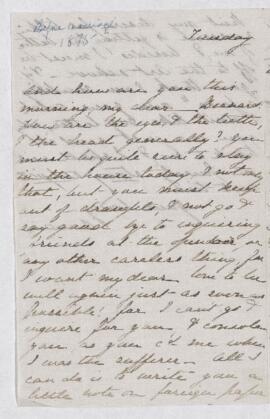 Before marriage
1875
Tuesday
And how are you this
morning my dear Bernard
How are the eyes, & the teeth,
& the head generally? you
must be quite sure to stay
in the house today, if not only
that, but you must keep
out of draughts & not go &
say good bye to inquiring
friends at the front door or
any other careless thing, for
I want my dear love to be
well again just as soon as
possible! for I cant go &
inquire for you & console
you as you c'd me when
I was the sufferer. All I
can do is to write you a
little note on foreign paper